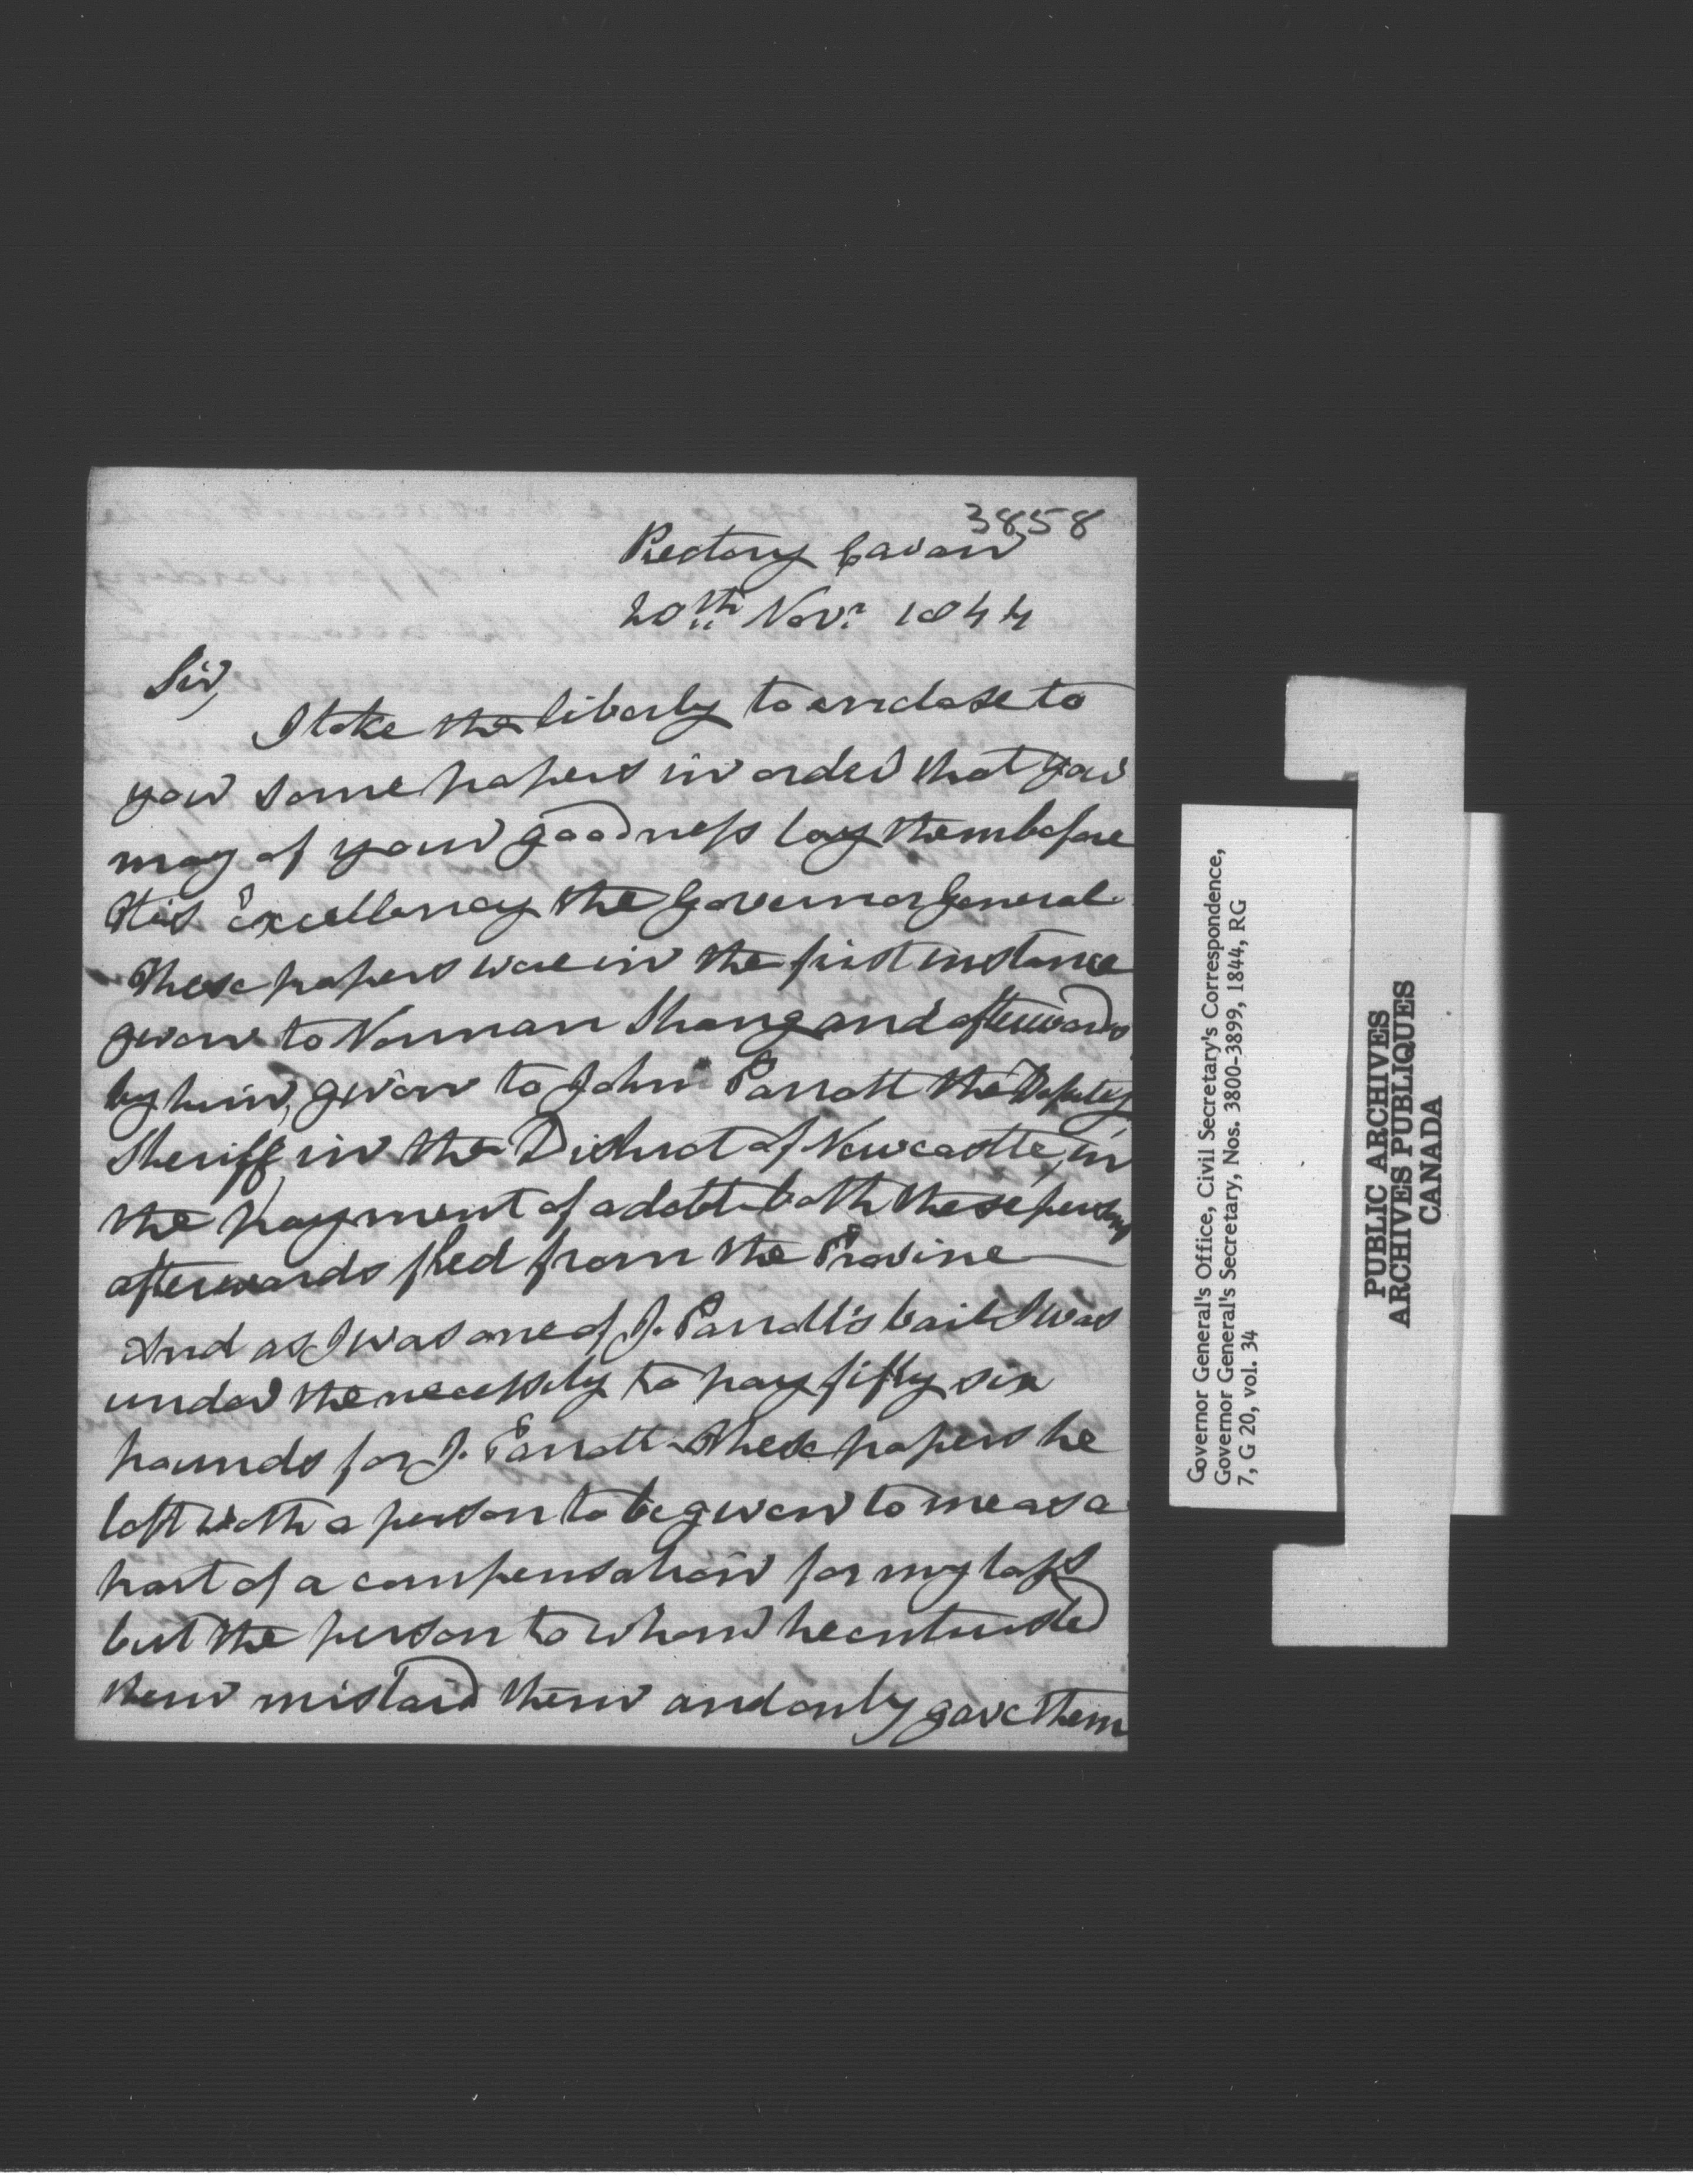 3858
Rectory Cavan
20th Novr 1844
Sir,
I take the liberty to enclose to
you some papers in order that you
may of your goodness lay them before
His Excellency the Governor General
These papers were in the first instance
given to Norman Strong and afterwards
by him, given to John Parrott the Deputy
Sheriff, in the District of Newcastle, in
the payment of a debt both these persons
afterwards fled from the Provine
And as I was one of J. Parrott's bail I was
under the necessity to pay fifty six
pounds for J. Parrott These papers he
left with a person to be given to me as a
part of a compensation for my loss
but the person to whom he entrusted
them mislaid them and only gave them
Governor General's Office, Civil Secretary's Correspondence,
Governor General's Secretary, Nos. 3800-3899, 1844, RG
7, G 20, vol. 34
PUBLIC ARCHIVES
ARCHIVES PUBLIQUES
CANADA